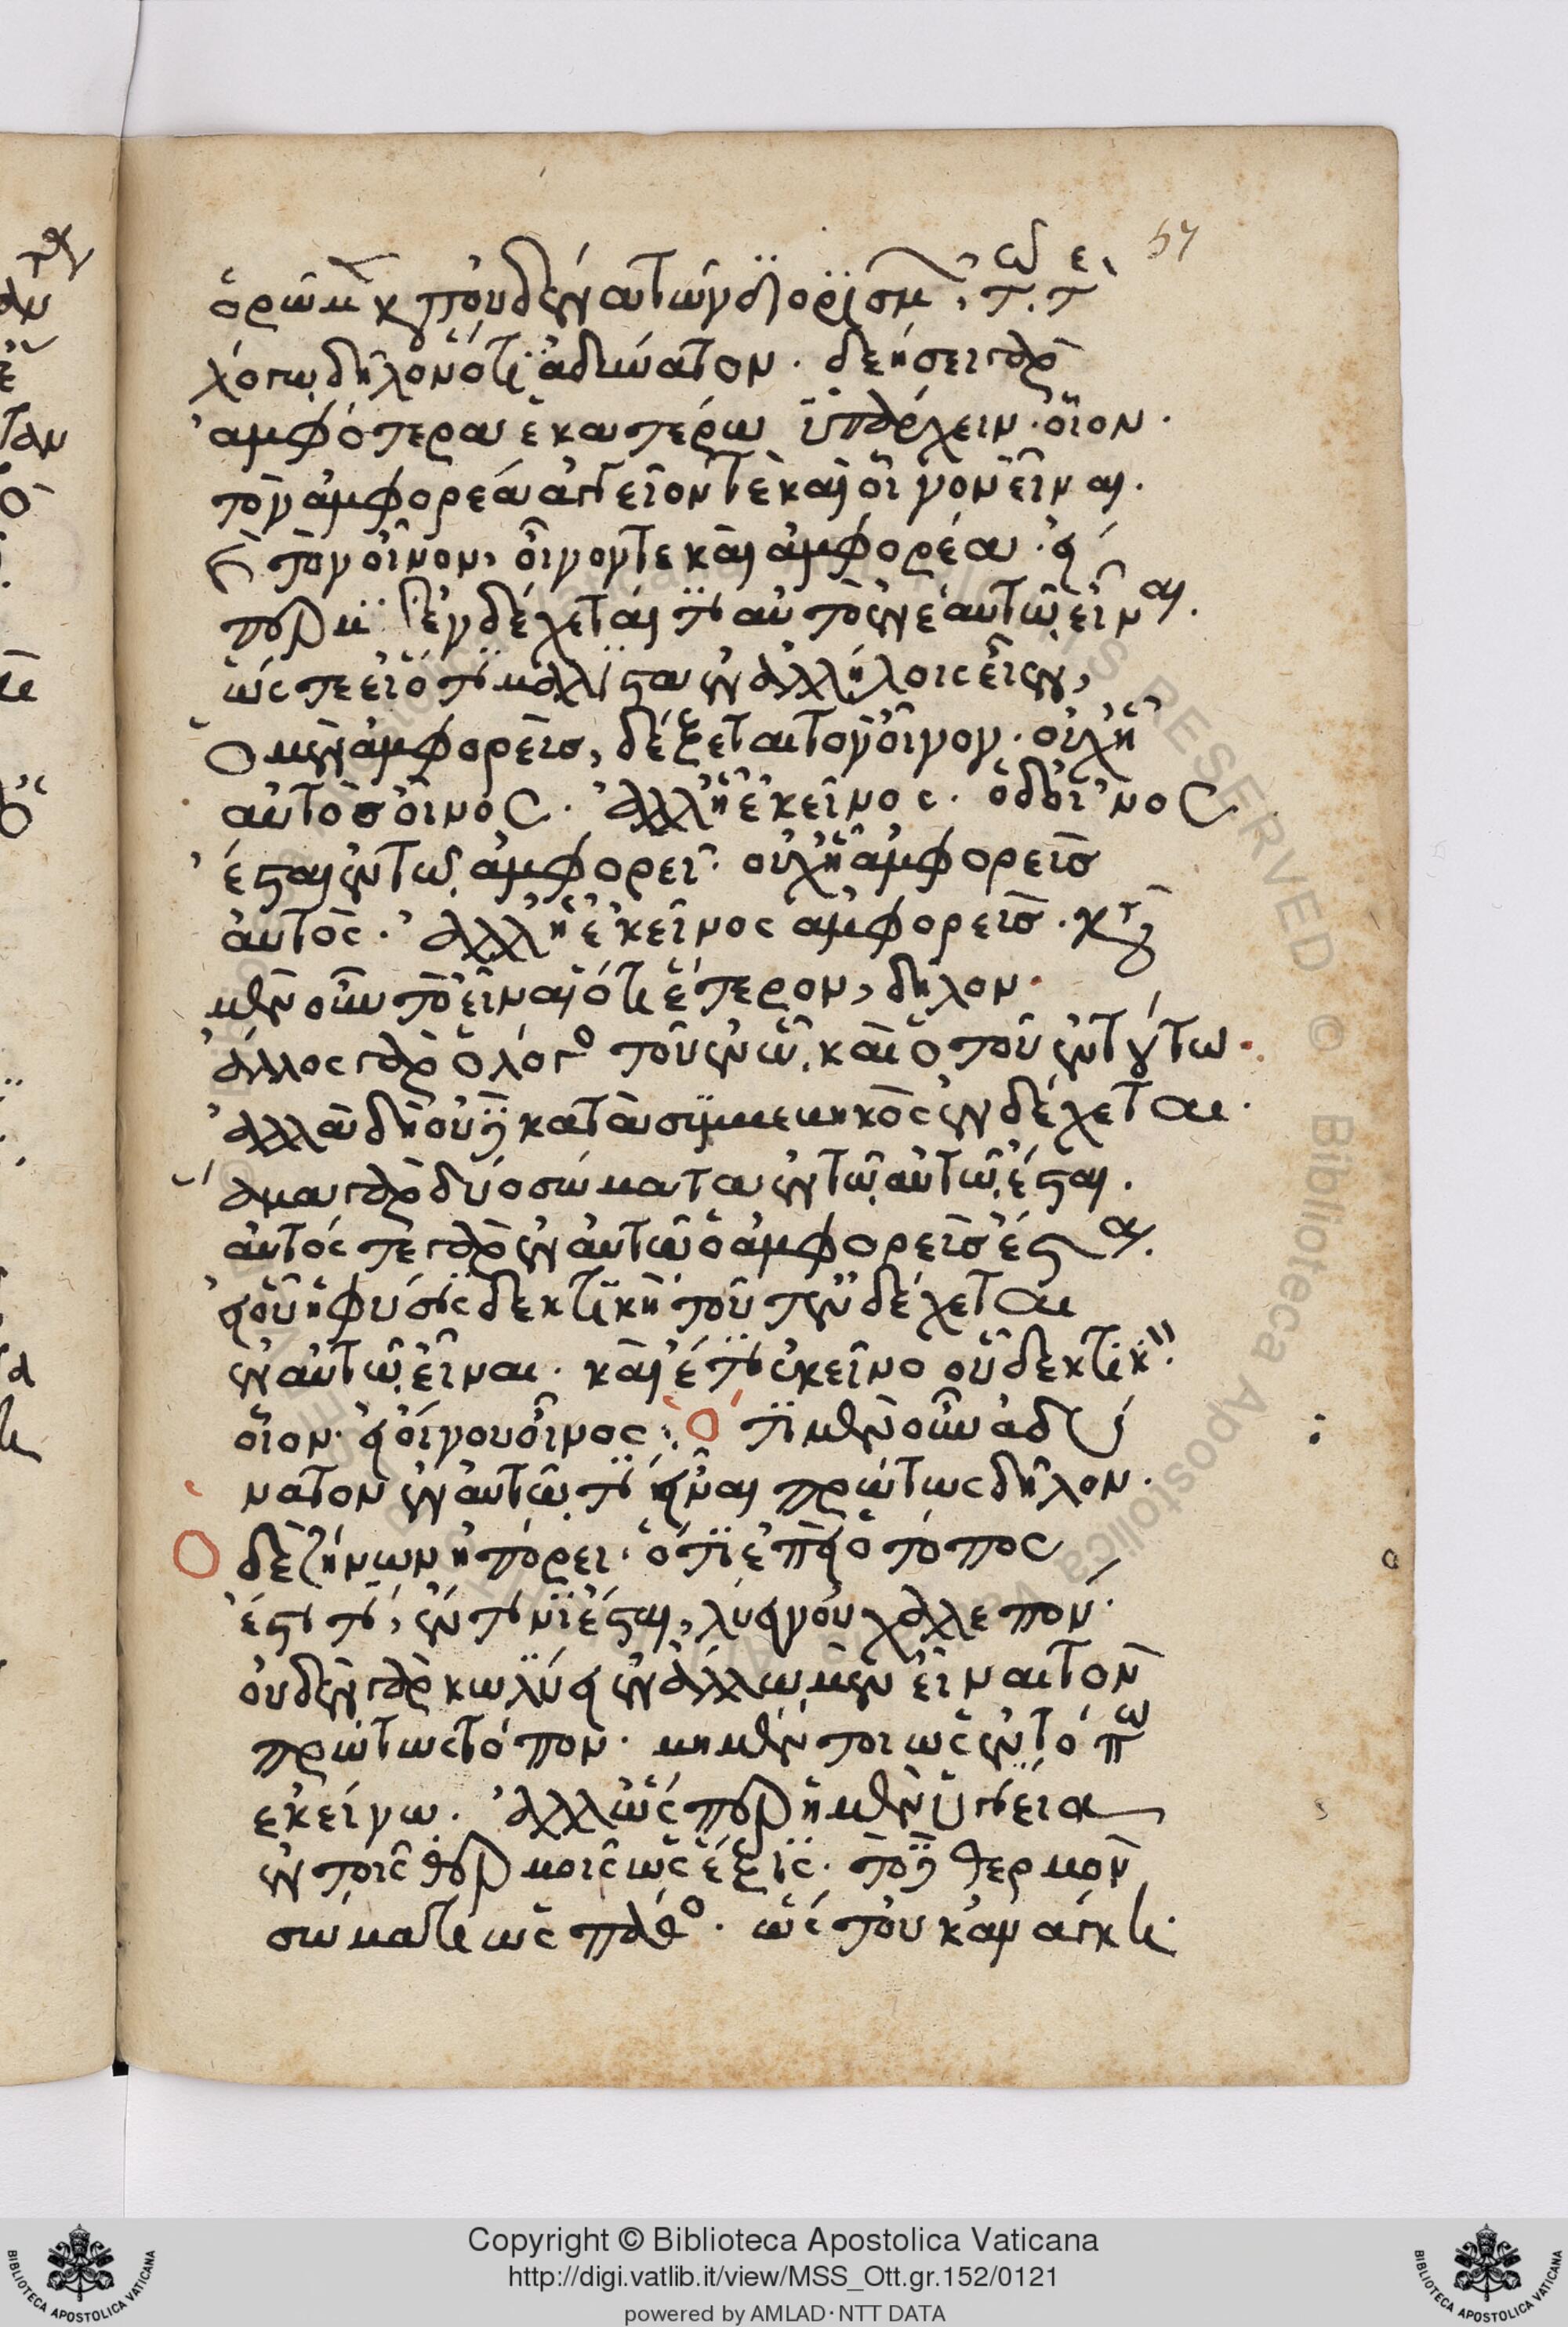 ὁρῶμεν κατ' οὐδένα τῶν διορισμῶν, τῷ τε
λόγῳ δῆλον ὅτι ἀδύνατον. δεήσει γὰρ
ἀμφότερα ἑκατέρῳ ὑπάρχειν. οἷον
τὸν ἀμφορέα ἀγγεῖον τὲ καὶ οἶνον εἶναι.
καὶ τὸν οἶνον, οἶνον τε καὶ ἀμφορέα. εἴ
περ ἐνδέχεταί τι αὐτὸ ἐν ἑαυτῷ εἶναι.
ὥστε εἰ ὅτι μάλιστα ἐν ἀλλήλοις εἶεν,
ὁ μὲν ἀμφορεὺς, δέξεται τὸν οἶνον. οὐχ ᾗ
αὐτὸς οἶνος. ἀλλ' ᾗ ἐκεῖνος. ὁ δ' οἶνος
ἔσται ἐν τῷ ἀμφορεῖ. οὐχ ᾗ ἀμφορεὺς
αὐτὸς. ἀλλ' ᾗ ἐκεῖνος ἀμφορεὺς. κατὰ
μὲν οὖν τὸ εἶναι ὅτι ἕτερον, δῆλον.
ἄλλος γὰρ ὁ λόγος τοῦ ἐν ᾧ. καὶ ὁ τοῦ ἐν τούτω.
ἀλλὰ δὴ οὐδὲ κατὰ συμβεβηκὸς ἐνδέχεται.
ἅμα γὰρ δύο σώματα ἐν τῷ αὐτῷ ἔσται.
αὐτός τε γὰρ ἐν αὑτῶ ὁ ἀμφορεὺς ἔσται.
εἰ οὗ ἡ φύσις δεκτικὴ τοῦτ' ἐνδέχεται
ἐν αὑτῷ εἶναι. καὶ ἔτι ἐκεῖνο οὗ δεκτικὴ.
οἷον. εἰ οἴνου οἶνος: ὅτι μὲν οὖν ἀδύ
νατον ἐν αὑτῷ τι εἶναι πρώτως δῆλον.
ὁ δὲ ζήνων ἠπόρει. ὅτι εἰ ὁ τόπος
ἔστι τι, ἔν τινι ἔσται, λύειν οὐ χαλεπόν.
οὐδὲν γὰρ κωλύει ἐν ἄλλῳ μὲν εἶναι τὸν
πρώτως τόπον. μὴ μέντοι ὡς ἐν τόπω
ἐκείνῳ. ἀλλ' ὥσπερ ἡ μὲν ὑγίεια
ἐν τοῖς θερμοῖς ὡς ἕξις. τὸ δὲ θερμὸν
σώματι ὡς πάθος. ὥστ' οὐκ ἀνάγκη.
Copyright © Biblioteca Apostolica Vaticana
http://digi.vatlib.it/view/MSS_Ott.gr.152/0121
powered by AMLAD · NTT DATA